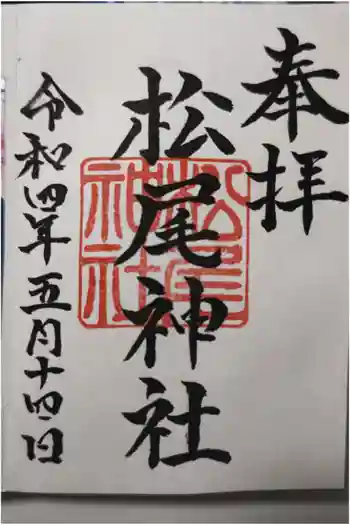 奉拝
松尾神社
令和四年五月十四日
松尾神社